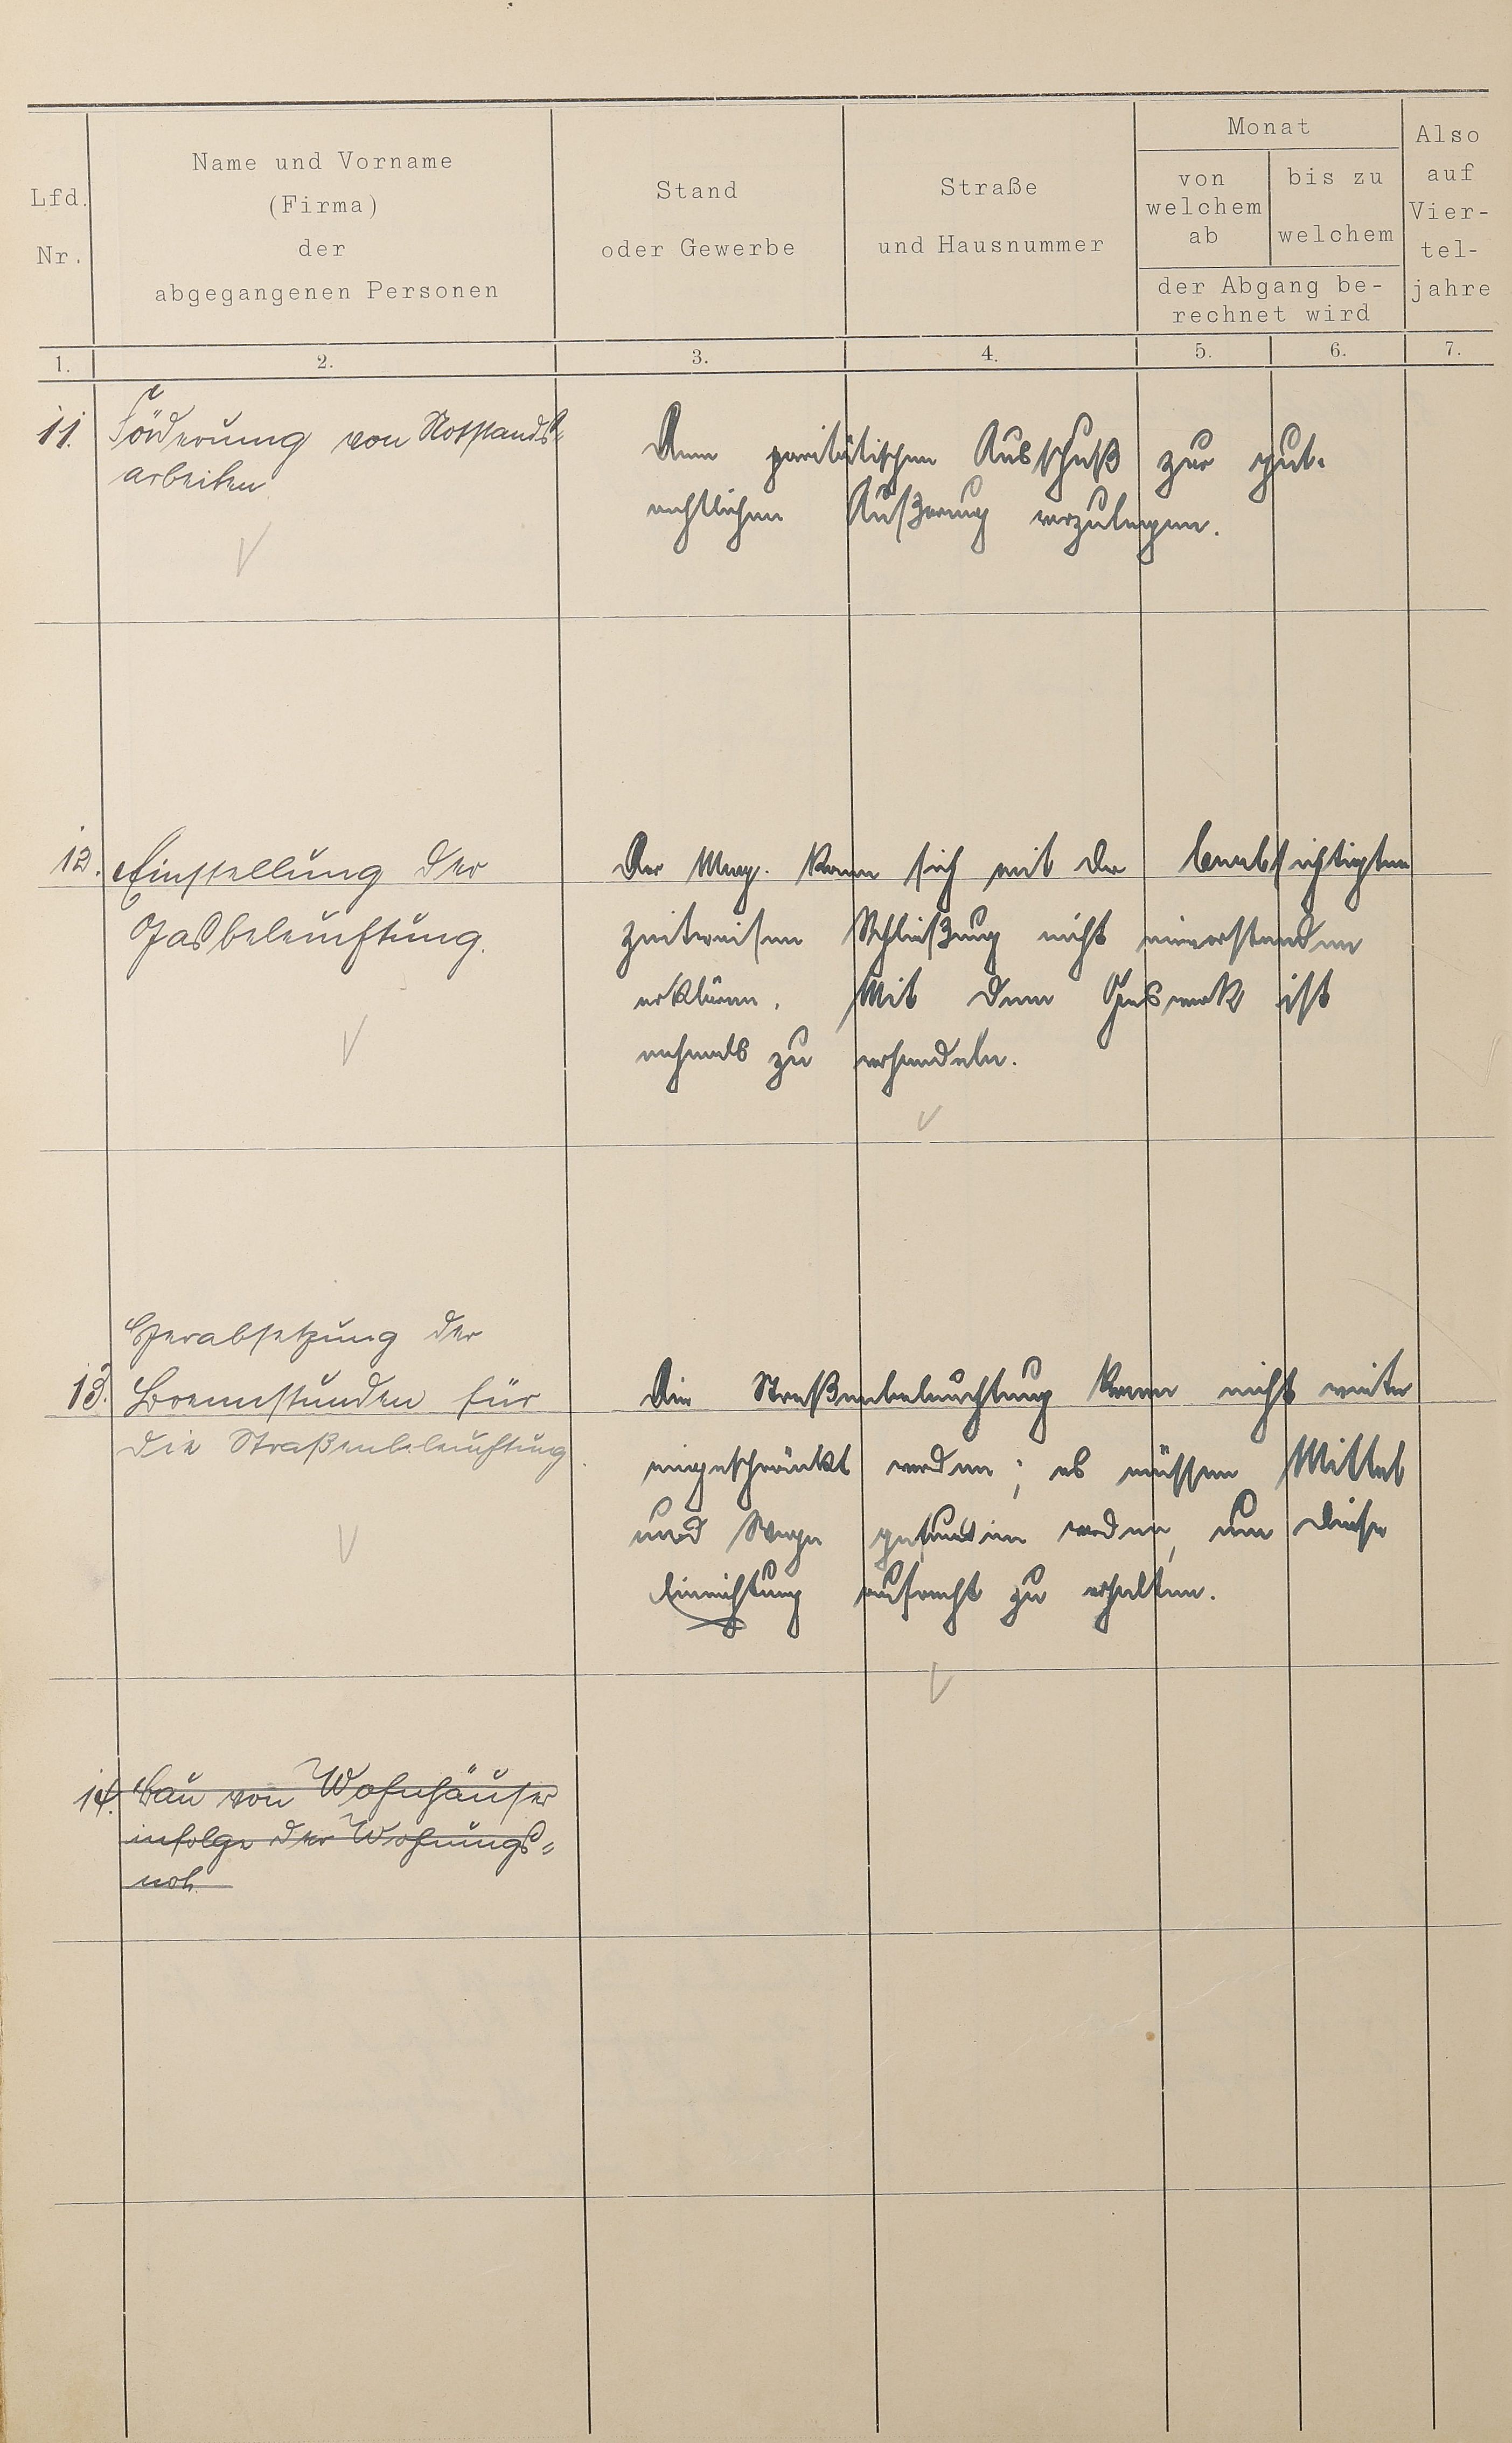 Lfd.
Nr.
Name und Vorname
(Firma)
der
abgegangenen Personen
Stand
oder Gewerbe
Straße
und Hausnummer
Monat
von
welchem
ab
bis zu
welchem
der Abgang be-
rechnet wird
Also
auf
Vier-
tel-
jahre
1. 2. 3. 4. 5. 6. 7.
11. Förderung von Notstands-
arbeiten
Dem paritätischen Ausschuß zur gut-
achtlichen Äußerung vorzulegen.
12. Einstellung der
Gasbeleuchtung.
Der Mag. kann sich mit der beabsichtigten
zeitweisen Schließung nicht einverstanden
erklären. Mit dem Gaswerk ist
nochmals zu verhandeln.
Herabsetzung der
13. Brennstunden für
die Straßenbeleuchtung
Die Straßenbeleuchtung kann nicht weiter
eingeschränkt werden; es müssen Mittel
und Wege gefunden werden, um diese
Einrichtung aufrecht zu erhalten.
14. Bau von Wohnhäuser
infolge der Wohnungs-
not.